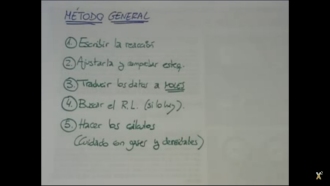 MÉTODO GENERAL
① Escribir la reacción
② Ajustarla y comprobar esteq.
③ Traducir los datos a moles
④ Buscar el R.L. (si lo hay)
⑤ Hacer los cálculos
(Cuidado con gases y densidades)